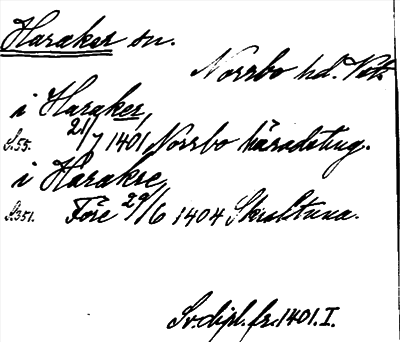 Haraker sn.
Norrbo hd. Vstm.
i Haraker,
S.55. 21/7 1401 Norrbo häradsting.
i Harakre,
S.351. Före 29/6 1404 Skultuna.
Sv. dipl. fr. 1401. I.